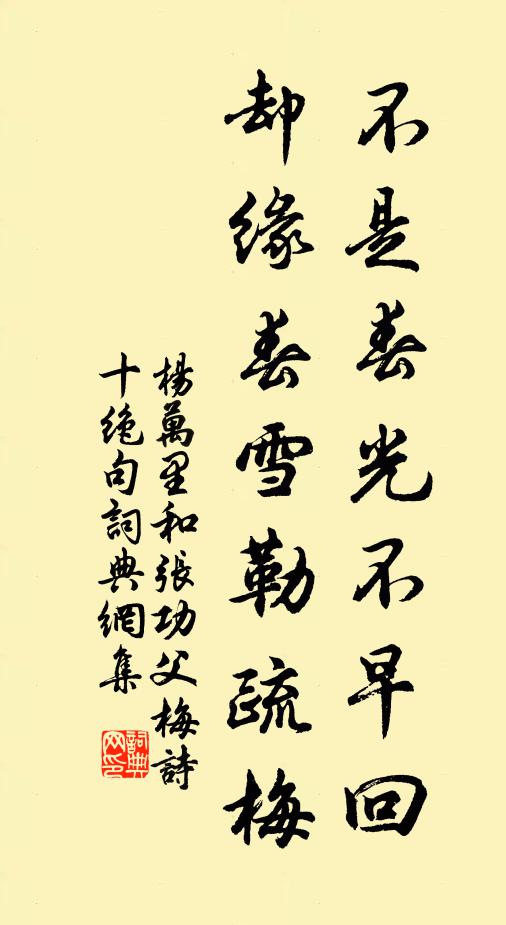 不是春光不早回
却緣春雪勒疏梅
楊萬里和張功父梅詩
十絶句詞典網集
詞典網印